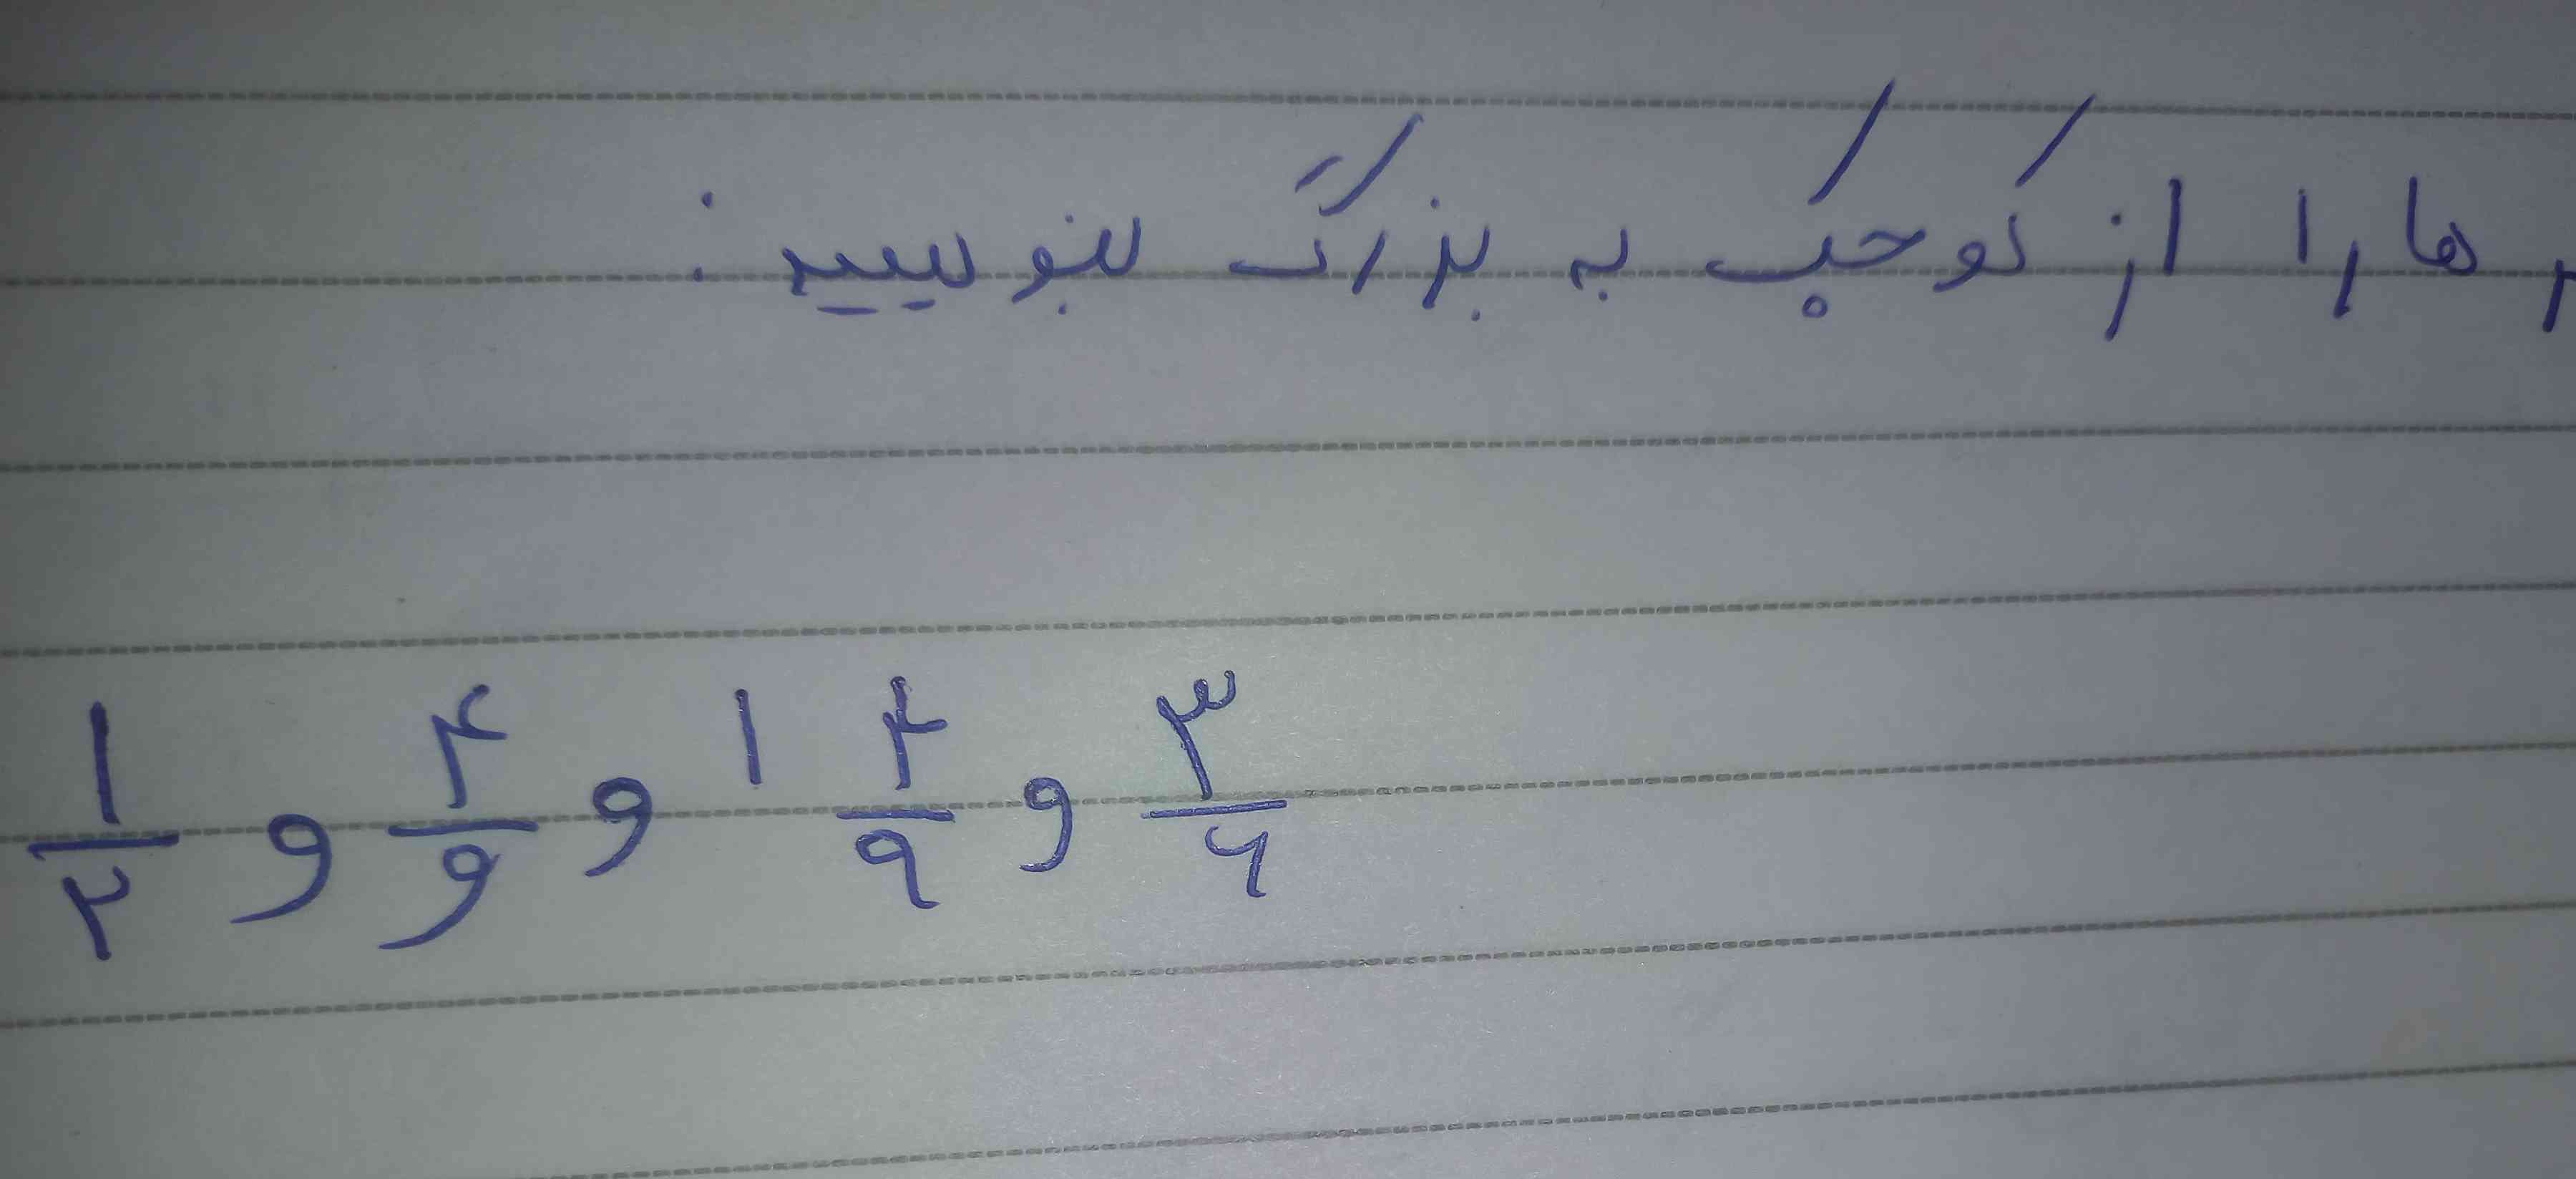 ها را از کوچک به بزرگ بنویسید:
۱/۲ و ۴/۹ و ۱ ۴/۹ و ۳/۶